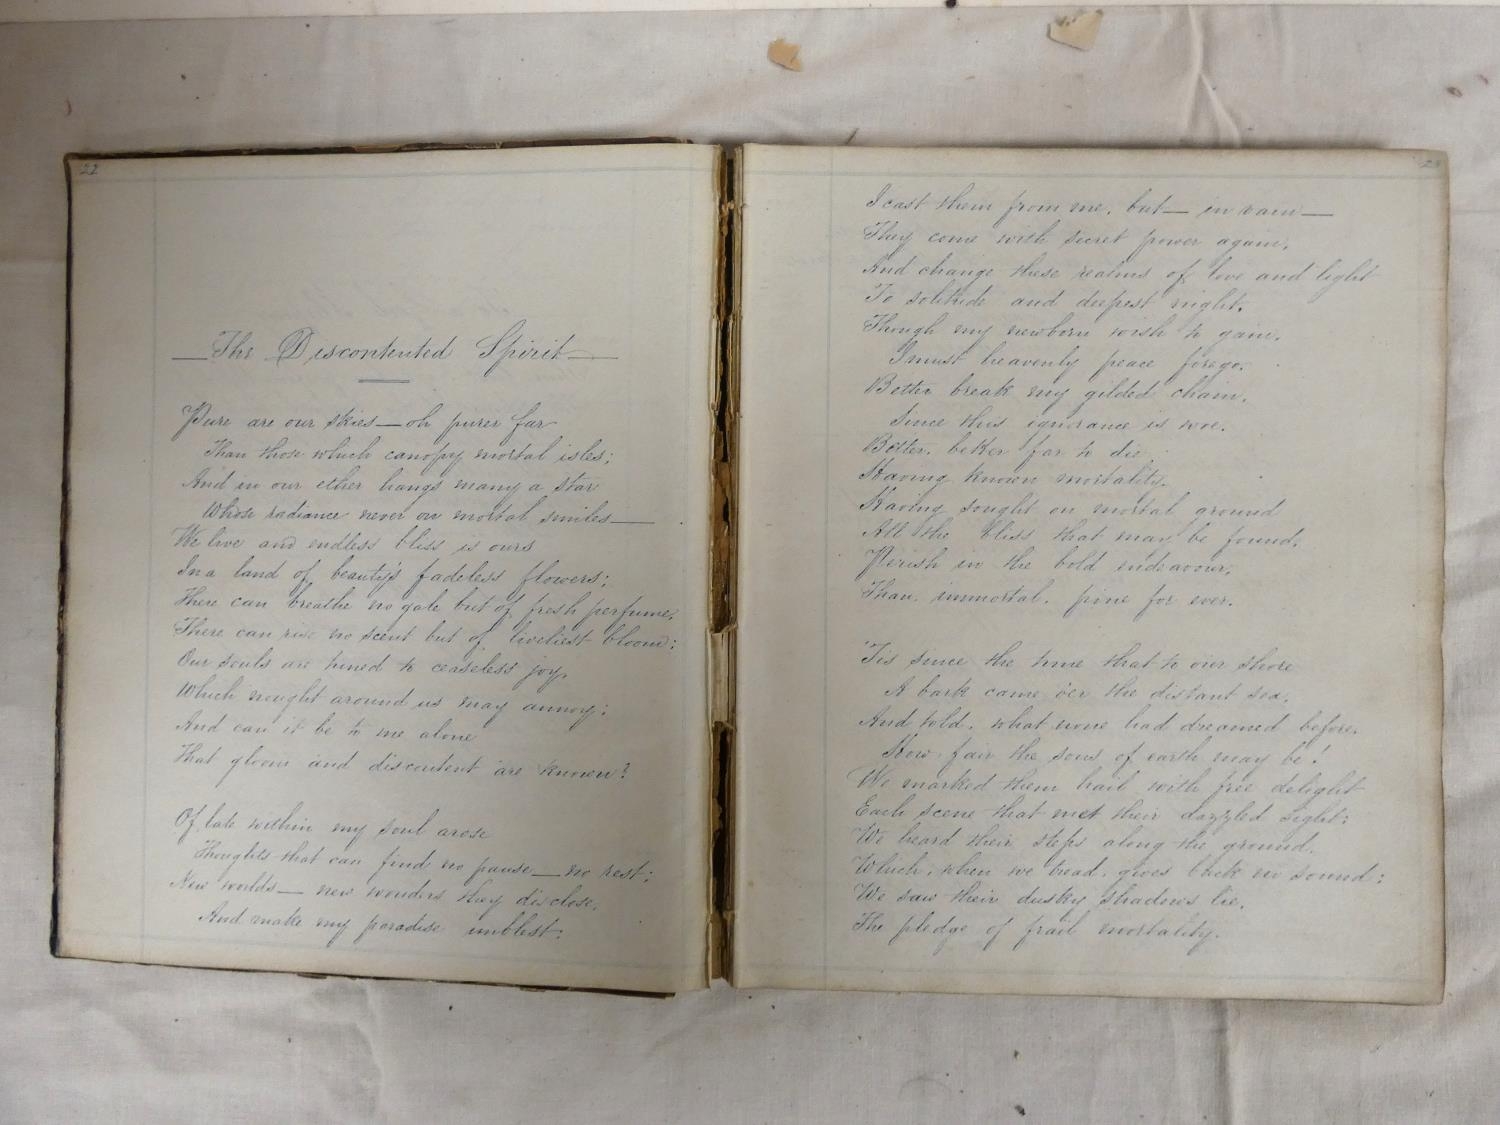 22
The Discontented Spirit
Pure are our skies — oh purer far
Than those which canopy mortal isles;
And in our ether hangs many a star
Whose radiance never on mortal smiles —
We live and endless bliss is ours
In a land of beauty's fadeless flowers;
There can breathe no gale but of fresh perfume,
There can rise no scent but of liveliest bloom;
Our souls are tuned to ceaseless joy,
Which nought around us may annoy;
And can it be to me alone
That gloom and discontent are known?
Of late within my soul arose
Thoughts that can find no pause — no rest;
New worlds — new wonders they disclose,
And make my paradise unblest;
23
I cast them from me, but — in vain —
They come with secret power again,
And change these realms of love and light
To solitude and deepest night.
Though my newborn wish to gain,
I must heavenly peace forego,
Better break my gilded chain,
Since this ignorance is woe.
Better, better far to die,
Having known mortality.
Having sought on mortal ground
All the bliss that may be found,
Perish in the bold endeavour,
Than, immortal, pine for ever.
'Tis since the time that to our shore
A bark came o'er the distant sea,
And told, what none had dreamed before,
How fair the sons of earth may be!
We marked them hail with free delight
Each scene that met their dazzled sight;
We heard their steps along the ground,
Which, when we tread, gives back no sound;
We saw their dusky shadows lie,
The pledge of frail mortality.